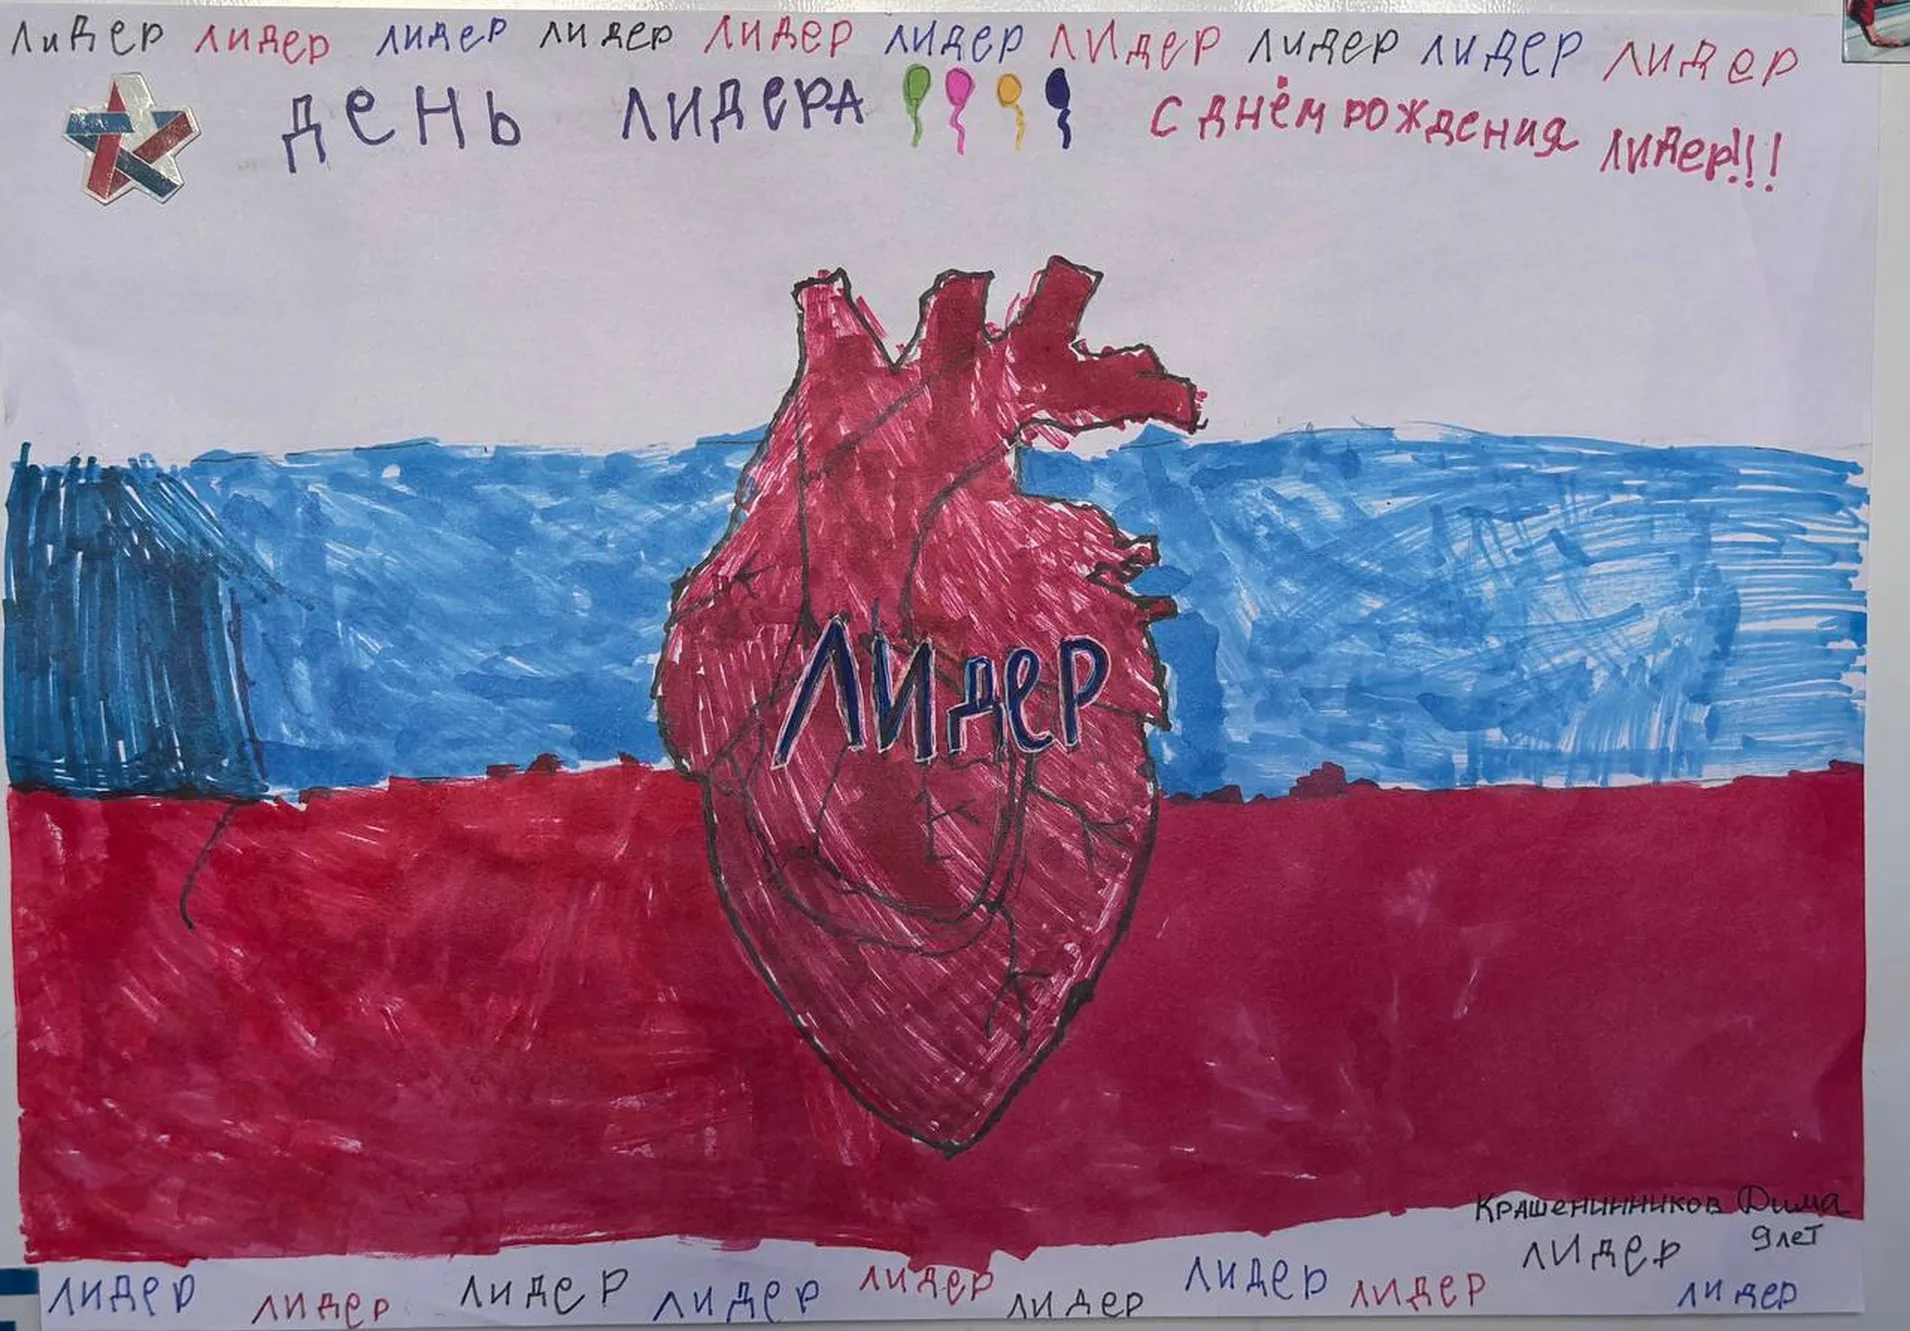 лидер лидер лидер лидер лидер лидер лидер лидер лидер лидер
день лидера с днём рождения лидер!!!
Лидер
Крашенинников Дима
9 лет
лидер лидер лидер лидер лидер лидер лидер лидер лидер лидер